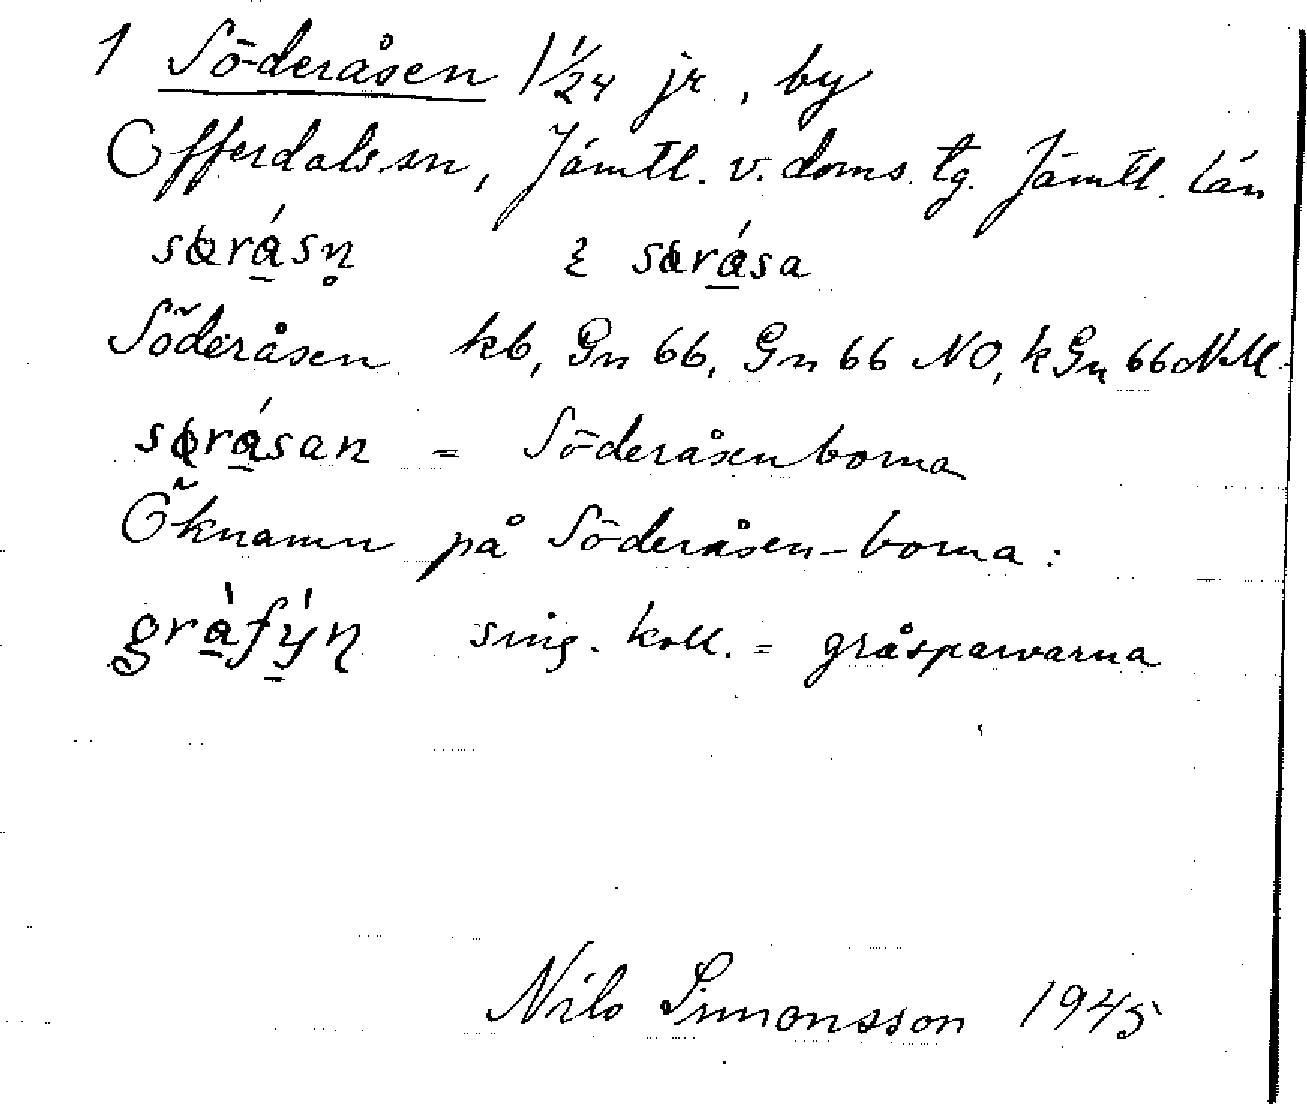 1 Söderåsen 1 1/24 jr, by
Offerdals sn, Jämtl. v. doms. tg. Jämtl. län
Söderåsen kb, Gn 66, Gn 66 NO, kGn 66
= Söderåsenborna
Öknamn på Söderåsen-borna:
sing. koll. = gråsparvarna
Nils Simonsson 1945